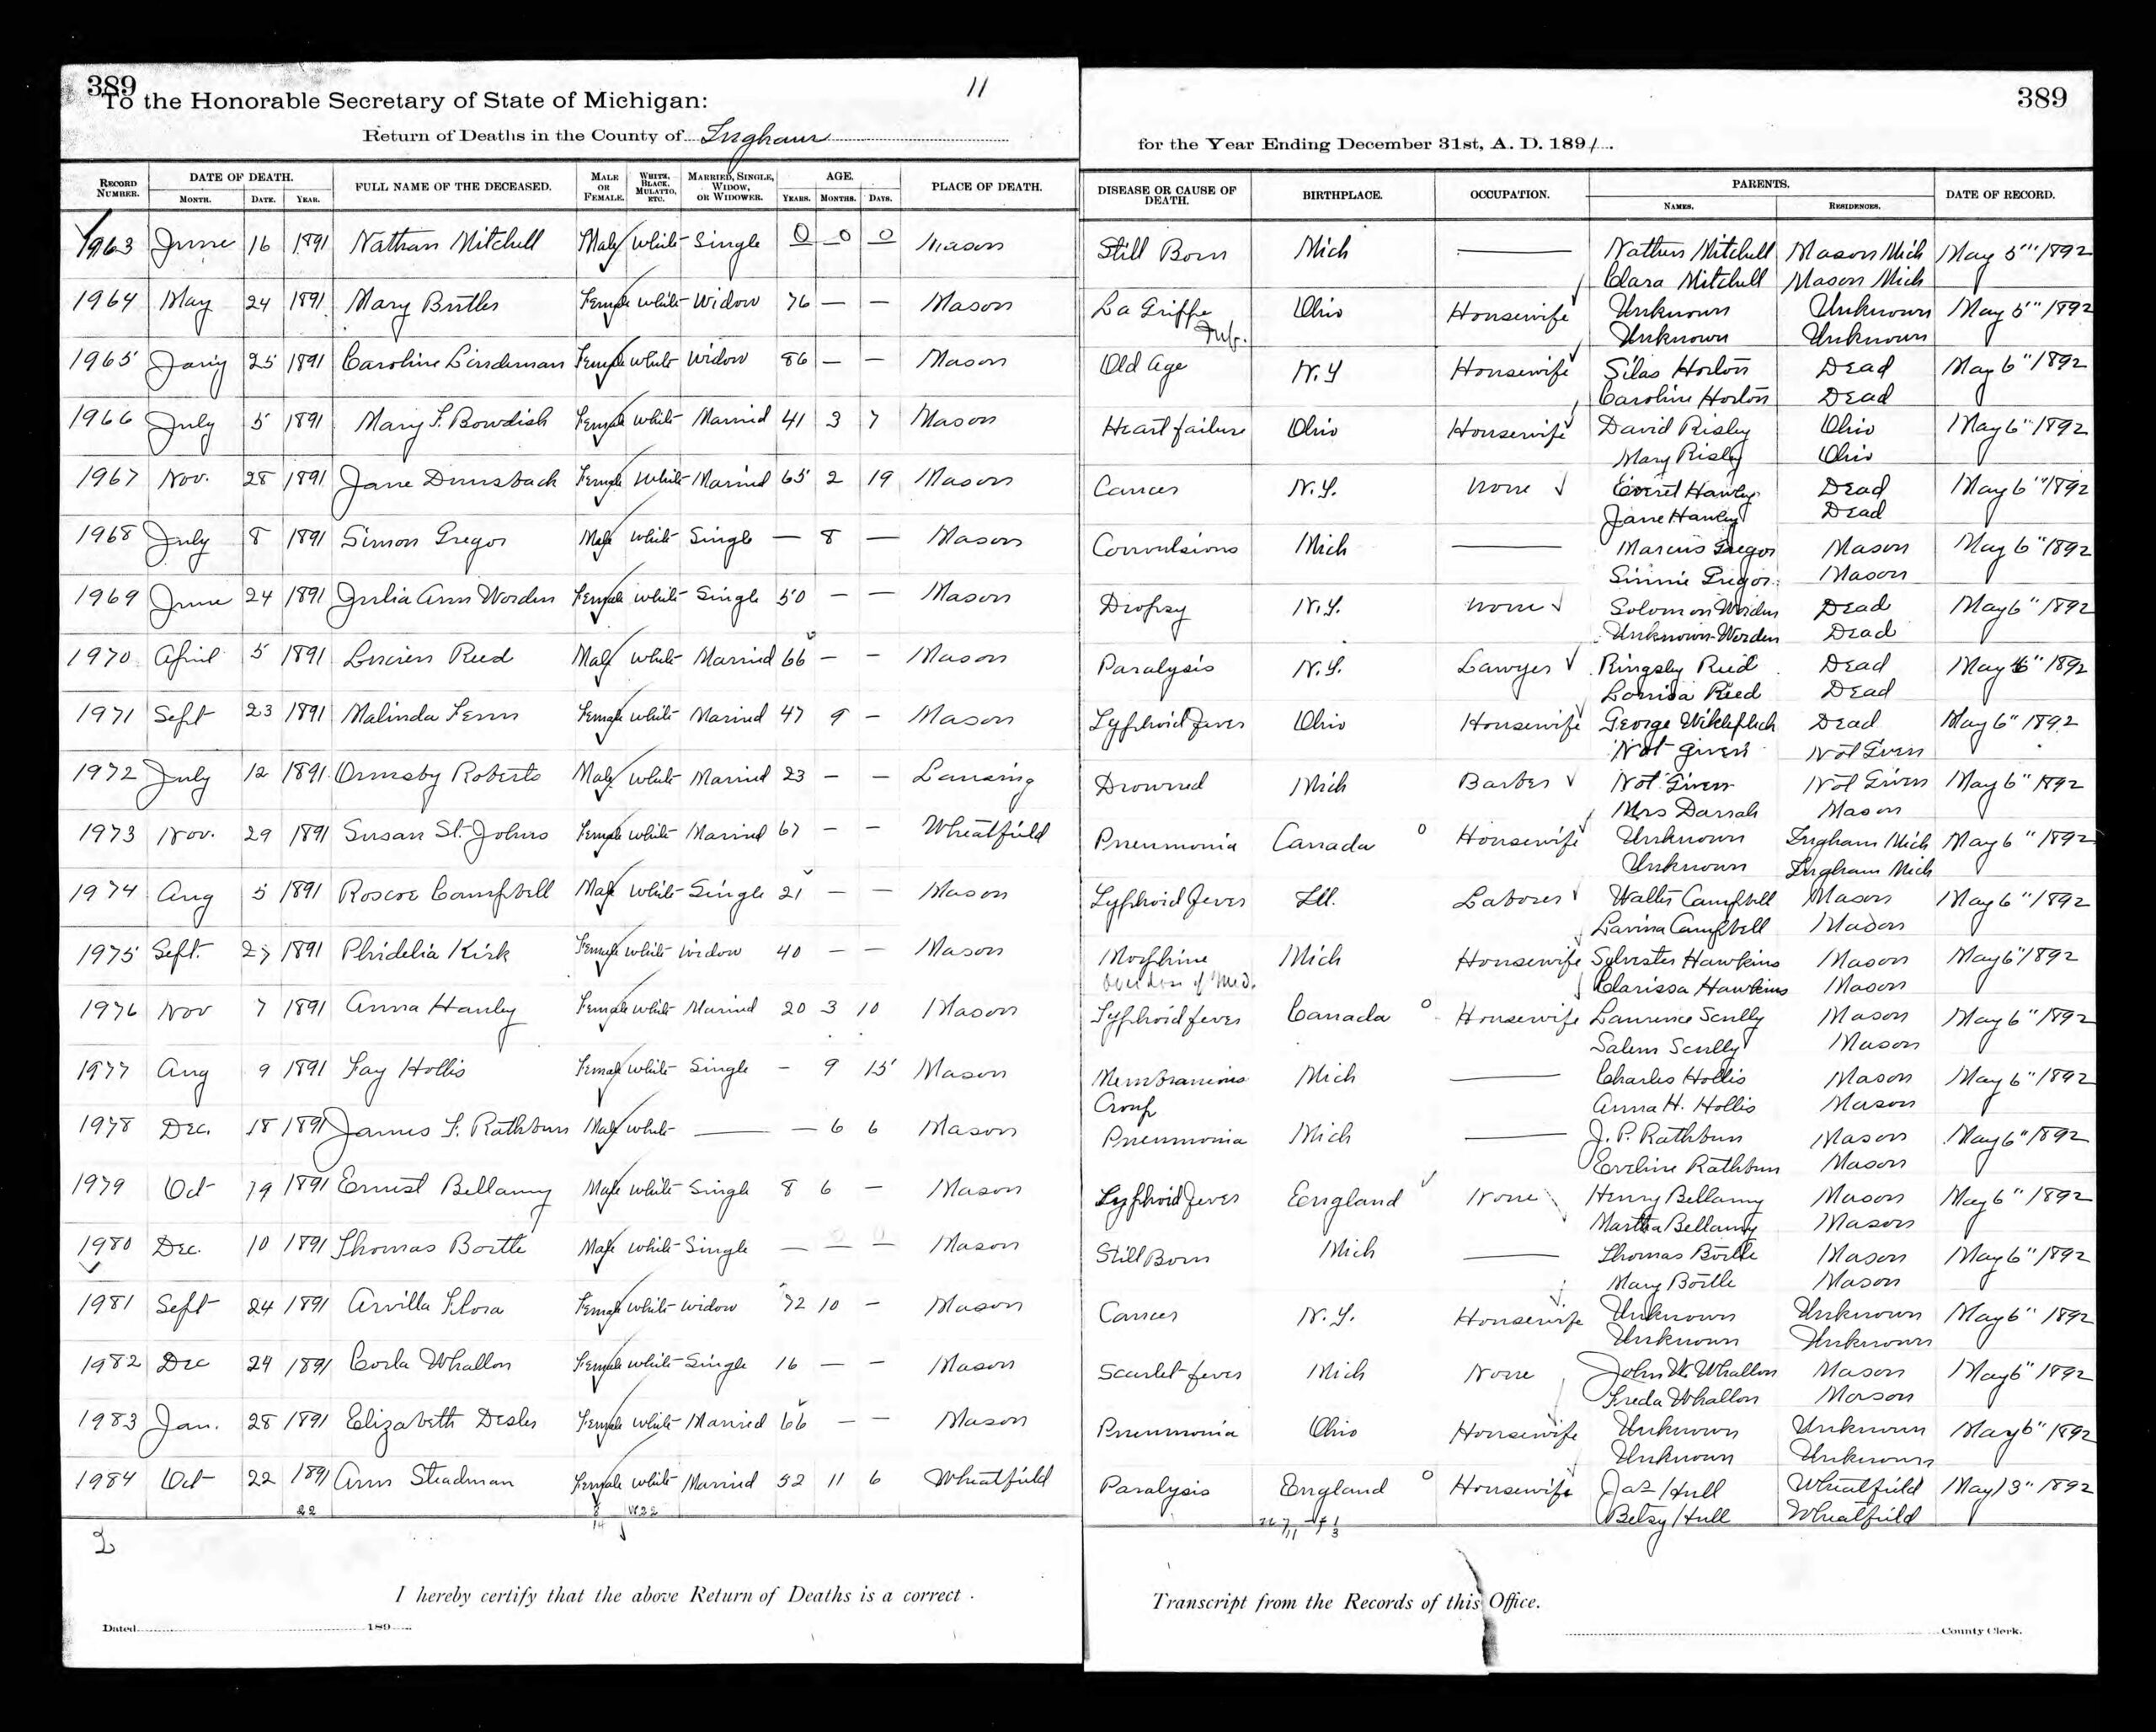 389
To the Honorable Secretary of State of Michigan: 11
Return of Deaths in the County of Ingham
389
for the Year Ending December 31st, A. D. 1891.
RECORD NUMBER. DATE OF DEATH. MONTH. DATE. YEAR. FULL NAME OF THE DECEASED. MALE OR FEMALE. WHITE, BLACK, MULATTO, ETC. MARRIED, SINGLE, WIDOW, OR WIDOWER. AGE. YEARS. MONTHS. DAYS. PLACE OF DEATH. DISEASE OR CAUSE OF DEATH. BIRTHPLACE. OCCUPATION. PARENTS. NAMES. RESIDENCES. DATE OF RECORD.
1963 June 16 1891 Nathan Mitchell Male White Single 0 0 0 Mason Still Born Mich — Nathan Mitchell Mason Mich May 5"' 1892
Clara Mitchell Mason Mich
1964 May 24 1891 Mary Butler Female White Widow 76 — — Mason La Grippe Ohio Housewife Unknown Unknown May 5" 1892
Inf. Unknown Unknown
1965 Jany 25 1891 Caroline Lindeman Female White Widow 86 — — Mason Old Age N.Y Housewife Silas Horton Dead May 6" 1892
Caroline Horton Dead
1966 July 5 1891 Mary F. Bowdish Female White Married 41 3 7 Mason Heart failure Ohio Housewife David Risley Ohio May 6" 1892
Mary Risley Ohio
1967 Nov. 28 1891 Jane Dunsback Female White Married 65 2 19 Mason Cancer N.Y. None Everet Hawley Dead May 6" 1892
Jane Hawley Dead
1968 July 8 1891 Simon Gregor Male White Single — 8 — Mason Convulsions Mich — Marcus Gregor Mason May 6" 1892
Simnie Gregor Mason
1969 June 24 1891 Julia Ann Worden Female White Single 50 — — Mason Dropsy N.Y. None Solomon Worden Dead May 6" 1892
Unknown Worden Dead
1970 April 5 1891 Lucien Reed Male White Married 66 — — Mason Paralysis N.Y. Lawyer Kingsley Reed Dead May 6" 1892
Louisa Reed Dead
1971 Sept 23 1891 Malinda Fenn Female White Married 47 9 — Mason Typhoid Fever Ohio Housewife George Dead May 6" 1892
Not given Not Given
1972 July 12 1891 Ormsby Roberts Male White Married 23 — — Lansing Drowned Mich Barber Not Given Not Given May 6" 1892
Mrs Darrah Mason
1973 Nov. 29 1891 Susan St. Johns Female White Married 67 — — Wheatfield Pneumonia Canada Housewife Unknown Ingham Mich May 6" 1892
Unknown Ingham Mich
1974 Aug 5 1891 Roscoe Campbell Male White Single 21 — — Mason Typhoid Fever Ill. Laborer Walter Campbell Mason May 6" 1892
Lavina Campbell Mason
1975 Sept. 27 1891 Phidelia Kirk Female White Widow 40 — — Mason Morphine Mich Housewife Sylvester Hawkins Mason May 6" 1892
over dose of Med. Clarissa Hawkins Mason
1976 Nov 7 1891 Anna Hanley Female White Married 20 3 10 Mason Typhoid fever Canada Housewife Laurence Scully Mason May 6" 1892
Salem Scully Mason
1977 Aug 9 1891 Fay Hollis Female White Single — 9 15 Mason Membranious Mich — Charles Hollis Mason May 6" 1892
Croup Anna H. Hollis Mason
1978 Dec. 18 1891 James F. Rathbun Male White — — 6 6 Mason Pneumonia Mich — J. P. Rathbun Mason May 6" 1892
Eveline Rathbun Mason
1979 Oct 19 1891 Ernest Bellamy Male White Single 8 6 — Mason Typhoid Fever England None Henry Bellamy Mason May 6" 1892
Martha Bellamy Mason
1980 Dec. 10 1891 Thomas Bortle Male White Single — — — Mason Still Born Mich — Thomas Bortle Mason May 6" 1892
Mary Bortle Mason
1981 Sept 24 1891 Arvilla Flora Female White Widow 72 10 — Mason Cancer N.Y. Housewife Unknown Unknown May 6" 1892
Unknown Unknown
1982 Dec 24 1891 Corla Whallon Female White Single 16 — — Mason Scarlet fever Mich None John W. Whallon Mason May 6" 1892
Freda Whallon Mason
1983 Jan. 28 1891 Elizabeth Desler Female White Married 66 — — Mason Pneumonia Ohio Housewife Unknown Unknown May 6" 1892
Unknown Unknown
1984 Oct 22 1891 Ann Steadman Female White Married 52 11 6 Wheatfield Paralysis England Housewife Jas Hull Wheatfield May 13" 1892
Betsy Hull Wheatfield
22 8 W22
14
2
I hereby certify that the above Return of Deaths is a correct Transcript from the Records of this Office.
Dated 189 County Clerk.